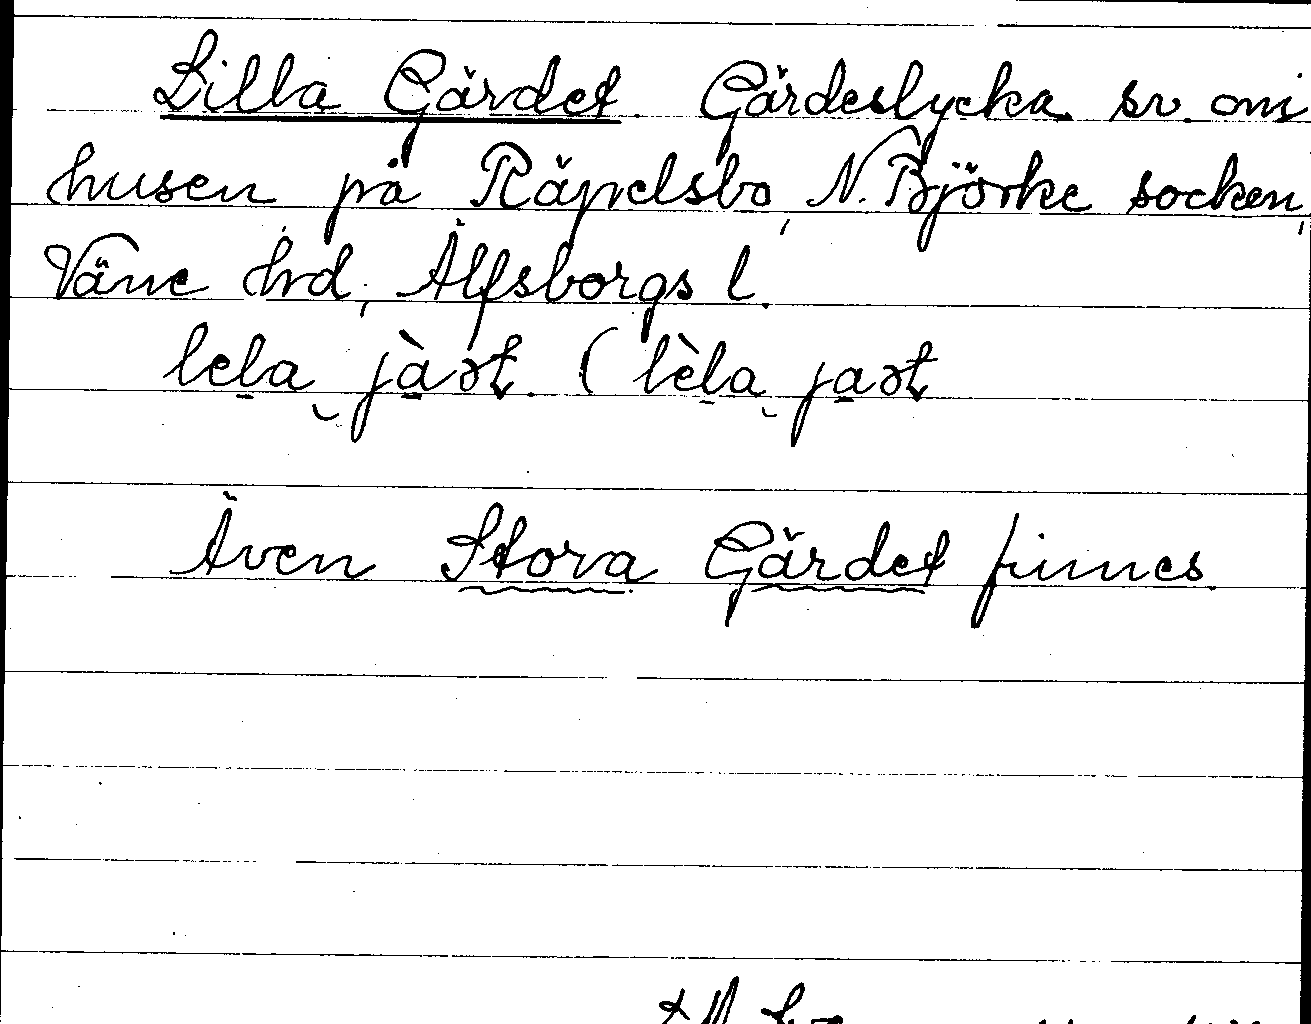 Lilla Gärdet. Gärdeslycka sv. om
husen på Räpelsbo, N. Björke socken,
Väne hd, Älfsborgs l.
Även Stora Gärdet finnes.